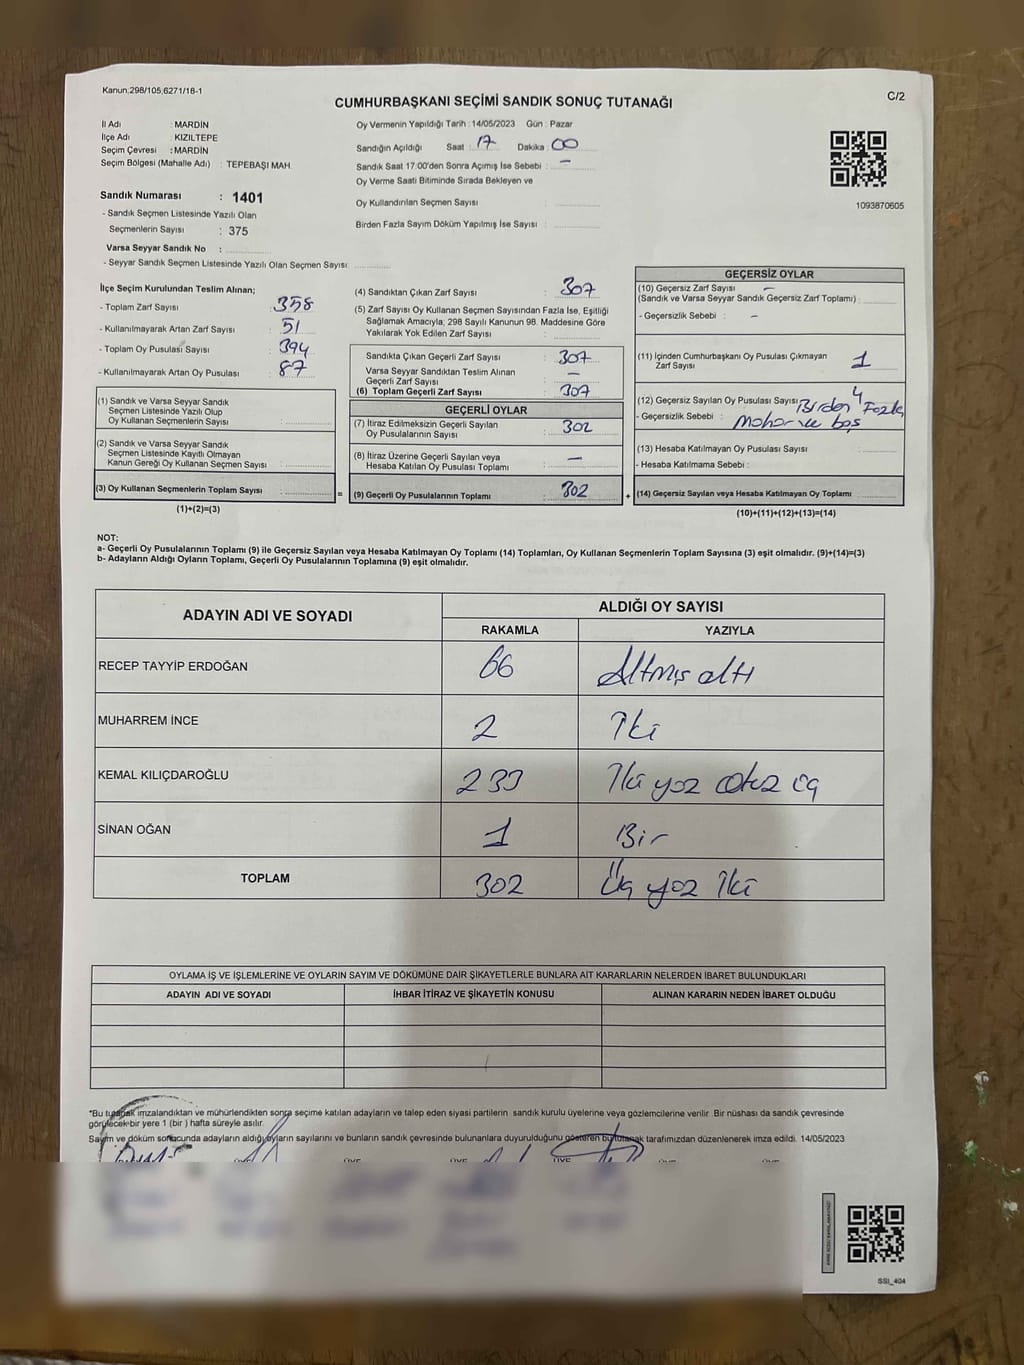 Kanun.298/105,6271/18-1
C/2
CUMHURBAŞKANI SEÇİMİ SANDIK SONUÇ TUTANAĞI
İl Adı : MARDİN
İlçe Adı : KIZILTEPE
Seçim Çevresi : MARDİN
Seçim Bölgesi (Mahalle Adı) : TEPEBAŞI MAH.
Sandık Numarası : 1401
- Sandık Seçmen Listesinde Yazılı Olan
Seçmenlerin Sayısı : 375
Varsa Seyyar Sandık No :
- Seyyar Sandık Seçmen Listesinde Yazılı Olan Seçmen Sayısı:
Oy Vermenin Yapıldığı Tarih : 14/05/2023 Gün : Pazar
Sandığın Açıldığı Saat : 17 Dakika : 00
Sandık Saat 17:00'den Sonra Açımış İse Sebebi : –
Oy Verme Saati Bitiminde Sırada Bekleyen ve
Oy Kullandırılan Seçmen Sayısı :
Birden Fazla Sayım Döküm Yapılmış İse Sayısı :
1093870605
İlçe Seçim Kurulundan Teslim Alınan;
- Toplam Zarf Sayısı : 358
- Kullanılmayarak Artan Zarf Sayısı : 51
- Toplam Oy Pusulası Sayısı : 394
- Kullanılmayarak Artan Oy Pusulası : 87
(1) Sandık ve Varsa Seyyar Sandık
Seçmen Listesinde Yazılı Olup
Oy Kullanan Seçmenlerin Sayısı :
(2) Sandık ve Varsa Seyyar Sandık
Seçmen Listesinde Kayıtlı Olmayan
Kanun Gereği Oy Kullanan Seçmen Sayısı :
(3) Oy Kullanan Seçmenlerin Toplam Sayısı : =
(1)+(2)=(3)
(4) Sandıktan Çıkan Zarf Sayısı : 307
(5) Zarf Sayısı Oy Kullanan Seçmen Sayısından Fazla İse, Eşitliği
Sağlamak Amacıyla; 298 Sayılı Kanunun 98. Maddesine Göre
Yakılarak Yok Edilen Zarf Sayısı :
Sandıkta Çıkan Geçerli Zarf Sayısı : 307
Varsa Seyyar Sandıktan Teslim Alınan
Geçerli Zarf Sayısı : –
(6) Toplam Geçerli Zarf Sayısı : 307
GEÇERLİ OYLAR
(7) İtiraz Edilmeksizin Geçerli Sayılan
Oy Pusulalarının Sayısı : 302
(8) İtiraz Üzerine Geçerli Sayılan veya
Hesaba Katılan Oy Pusulası Toplamı : –
(9) Geçerli Oy Pusulalarının Toplamı : 302 +
GEÇERSİZ OYLAR
(10) Geçersiz Zarf Sayısı –
(Sandık ve Varsa Seyyar Sandık Geçersiz Zarf Toplamı) :
- Geçersizlik Sebebi : –
(11) İçinden Cumhurbaşkanı Oy Pusulası Çıkmayan
Zarf Sayısı : 1
(12) Geçersiz Sayılan Oy Pusulası Sayısı : 4
- Geçersizlik Sebebi : Birden Fazla
Mohor ve boş
(13) Hesaba Katılmayan Oy Pusulası Sayısı :
- Hesaba Katılmama Sebebi :
(14) Geçersiz Sayılan veya Hesaba Katılmayan Oy Toplamı :
(10)+(11)+(12)+(13)=(14)
NOT:
a- Geçerli Oy Pusulalarının Toplamı (9) ile Geçersiz Sayılan veya Hesaba Katılmayan Oy Toplamı (14) Toplamları, Oy Kullanan Seçmenlerin Toplam Sayısına (3) eşit olmalıdır. (9)+(14)=(3)
b- Adayların Aldığı Oyların Toplamı, Geçerli Oy Pusulalarının Toplamına (9) eşit olmalıdır.
ADAYIN ADI VE SOYADI ALDIĞI OY SAYISI
RAKAMLA YAZIYLA
RECEP TAYYİP ERDOĞAN 66 Altmış altı
MUHARREM İNCE 2 İki
KEMAL KILIÇDAROĞLU 233 İki yoz otuz üç
SİNAN OĞAN 1 Bir
TOPLAM 302 Üç yoz İki
OYLAMA İŞ VE İŞLEMLERİNE VE OYLARIN SAYIM VE DÖKÜMÜNE DAİR ŞİKAYETLERLE BUNLARA AİT KARARLARIN NELERDEN İBARET BULUNDUKLARI
ADAYIN ADI VE SOYADI İHBAR İTİRAZ VE ŞİKAYETİN KONUSU ALINAN KARARIN NEDEN İBARET OLDUĞU
*Bu tutanak imzalandıktan ve mühürlendikten sonra seçime katılan adayların ve talep eden siyasi partilerin sandık kurulu üyelerine veya gözlemcilerine verilir. Bir nüshası da sandık çevresinde
görülecek bir yere 1 (bir ) hafta süreyle asılır.
Sayım ve döküm sonucunda adayların aldığı oyların sayılarını ve bunların sandık çevresinde bulunanlara duyurulduğunu gösteren bu tutanak tarafımızdan düzenlenerek imza edildi. 14/05/2023
SSI_404